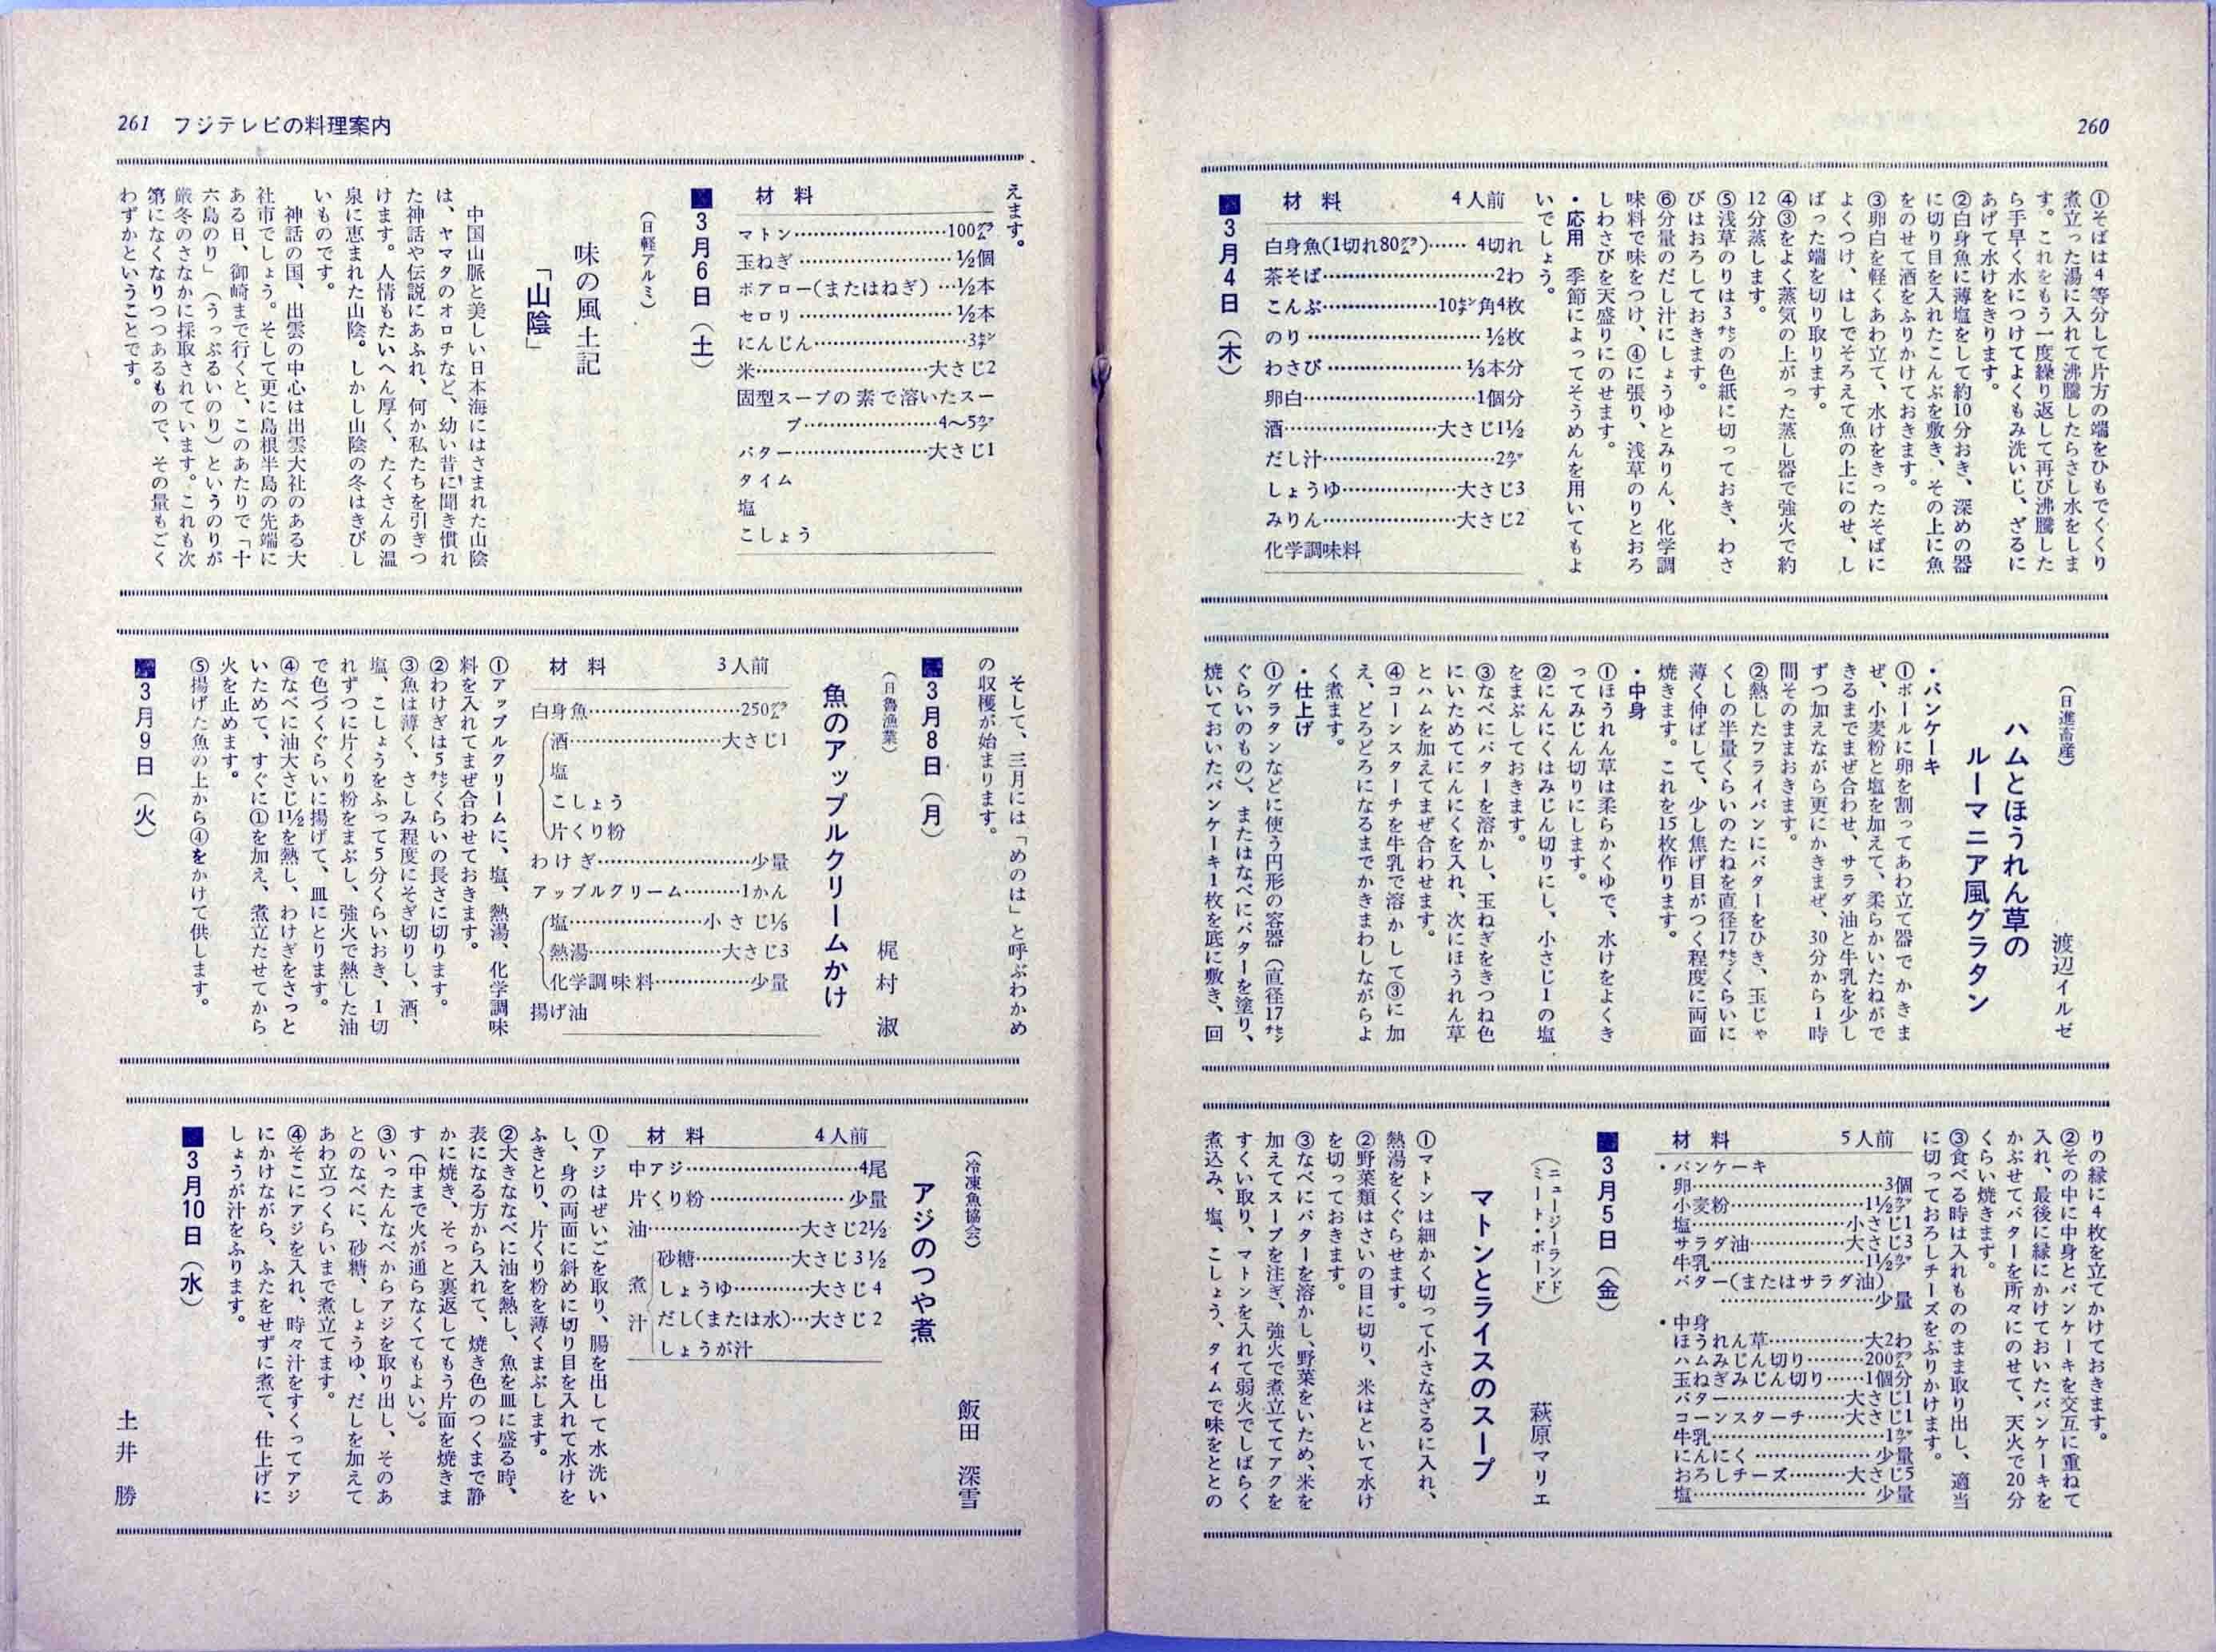 260
①そばは４等分して片方の端をひもでくくり
煮立った湯に入れて沸騰したらさし水をしま
す。これをもう一度繰り返して再び沸騰した
ら手早く水につけてよくもみ洗いし、ざるに
あげて水けをきります。
②白身魚に薄塩をして約10分おき、深めの器
に切り目を入れたこんぶを敷き、その上に魚
をのせて酒をふりかけておきます。
③卵白を軽くあわ立て、水けをきったそばに
よくつけ、はしでそろえて魚の上にのせ、し
ばった端を切り取ります。
④③をよく蒸気の上がった蒸し器で強火で約
12分蒸します。
⑤浅草のりは３㌢の色紙に切っておき、わさ
びはおろしておきます。
⑥分量のだし汁にしょうゆとみりん、化学調
味料で味をつけ、④に張り、浅草のりとおろ
しわさびを天盛りにのせます。
・応用　季節によってそうめんを用いてもよ
いでしょう。
材料　4人前
白身魚(1切れ80㌘)…… 4切れ
茶そば……………………2わ
こんぶ………………10㌢角4枚
のり……………………½枚
わさび………………⅓本分
卵白……………………1個分
酒…………………大さじ1½
だし汁……………………2㌍
しょうゆ………………大さじ3
みりん…………………大さじ2
化学調味料
■３月４日（木）
（日進畜産）　渡辺イルゼ
ハムとほうれん草の
ルーマニア風グラタン
・パンケーキ
①ボールに卵を割ってあわ立て器でかきま
ぜ、小麦粉と塩を加えて、柔らかいたねがで
きるまでまぜ合わせ、サラダ油と牛乳を少し
ずつ加えながら更にかきまぜ、30分から１時
間そのままおきます。
②熱したフライパンにバターをひき、玉じゃ
くしの半量くらいのたねを直径17㌢くらいに
薄く伸ばして、少し焦げ目がつく程度に両面
焼きます。これを15枚作ります。
・中身
①ほうれん草は柔らかくゆで、水けをよくき
ってみじん切りにします。
②にんにくはみじん切りにし、小さじ１の塩
をまぶしておきます。
③なべにバターを溶かし、玉ねぎをきつね色
にいためてにんにくを入れ、次にほうれん草
とハムを加えてまぜ合わせます。
④コーンスターチを牛乳で溶かして③に加
え、どろどろになるまでかきまわしながらよ
く煮ます。
・仕上げ
①グラタンなどに使う円形の容器（直径17㌢
ぐらいのもの）、またはなべにバターを塗り、
焼いておいたパンケーキ１枚を底に敷き、回
りの縁に４枚を立てかけておきます。
②その中に中身とパンケーキを交互に重ねて
入れ、最後に縁にかけておいたパンケーキを
かぶせてバターを所々にのせて、天火で20分
くらい焼きます。
③食べる時は入れもののまま取り出し、適当
に切っておろしチーズをふりかけます。
材料　5人前
・パンケーキ
卵……………………3個
小麦粉………………1½㌍
塩…………………小さじ1
サラダ油……………大さじ3
牛乳…………………1½㌍
バター(またはサラダ油)
……………………少量
・中身
ほうれん草……………大2わ
ハムみじん切り………200㌘
玉ねぎみじん切り……1個分
バター………………大さじ1
コーンスターチ……大さじ1
牛乳……………………1㌍
にんにく………………少量
おろしチーズ………大さじ5
塩………………………少量
■３月５日（金）
（ニュージーランド
ミート・ボード）　萩原マリエ
マトンとライスのスープ
①マトンは細かく切って小さなざるに入れ、
熱湯をくぐらせます。
②野菜類はさいの目に切り、米はといて水け
を切っておきます。
③なべにバターを溶かし、野菜をいため、米を
加えてスープを注ぎ、強火で煮立ててアクを
すくい取り、マトンを入れて弱火でしばらく
煮込み、塩、こしょう、タイムで味をととの
261　フジテレビの料理案内
えます。
材料
マトン……………………100㌘
玉ねぎ……………………½個
ポアロー(またはねぎ)…½本
セロリ……………………½本
にんじん……………………3㌢
米………………………大さじ2
固型スープの素で溶いたスー
プ…………………4～5㌍
バター…………………大さじ1
タイム
塩
こしょう
■３月６日（土）
（日軽アルミ）
味の風土記
「山陰」
中国山脈と美しい日本海にはさまれた山陰
は、ヤマタのオロチなど、幼い昔に聞き慣れ
た神話や伝説にあふれ、何か私たちを引きつ
けます。人情もたいへん厚く、たくさんの温
泉に恵まれた山陰。しかし山陰の冬はきびし
いものです。
神話の国、出雲の中心は出雲大社のある大
社市でしょう。そして更に島根半島の先端に
ある日、御崎まで行くと、このあたりで「十
六島のり」（うっぷるいのり）というのりが
厳冬のさなかに採取されています。これも次
第になくなりつつあるもので、その量もごく
わずかということです。
そして、三月には「めのは」と呼ぶわかめ
の収穫が始まります。
■３月８日（月）
（日魯漁業）　梶村　淑
魚のアップルクリームかけ
材料　3人前
白身魚…………………250㌘
酒……………………大さじ1
塩
こしょう
片くり粉
わけぎ……………………少量
アップルクリーム………1かん
塩…………………小さじ⅕
熱湯…………………大さじ3
化学調味料……………少量
揚げ油
①アップルクリームに、塩、熱湯、化学調味
料を入れてまぜ合わせておきます。
②わけぎは５㌢くらいの長さに切ります。
③魚は薄く、さしみ程度にそぎ切りし、酒、
塩、こしょうをふって５分くらいおき、１切
れずつに片くり粉をまぶし、強火で熱した油
で色づくぐらいに揚げて、皿にとります。
④なべに油大さじ1½を熱し、わけぎをさっと
いためて、すぐに①を加え、煮立たせてから
火を止めます。
⑤揚げた魚の上から④をかけて供します。
■３月９日（火）
（冷凍魚協会）　飯田　深雪
アジのつや煮
材料　4人前
中アジ………………………4尾
片くり粉…………………少量
油……………………大さじ2½
煮汁
砂糖……………大さじ3½
しょうゆ…………大さじ4
だし(または水)…大さじ2
しょうが汁
①アジはぜいごを取り、腸を出して水洗い
し、身の両面に斜めに切り目を入れて水けを
ふきとり、片くり粉を薄くまぶします。
②大きななべに油を熱し、魚を皿に盛る時、
表になる方から入れて、焼き色のつくまで静
かに焼き、そっと裏返してもう片面を焼きま
す（中まで火が通らなくてもよい）。
③いったんなべからアジを取り出し、そのあ
とのなべに、砂糖、しょうゆ、だしを加えて
あわ立つくらいまで煮立てます。
④そこにアジを入れ、時々汁をすくってアジ
にかけながら、ふたをせずに煮て、仕上げに
しょうが汁をふります。
■３月10日（水）
土井　勝